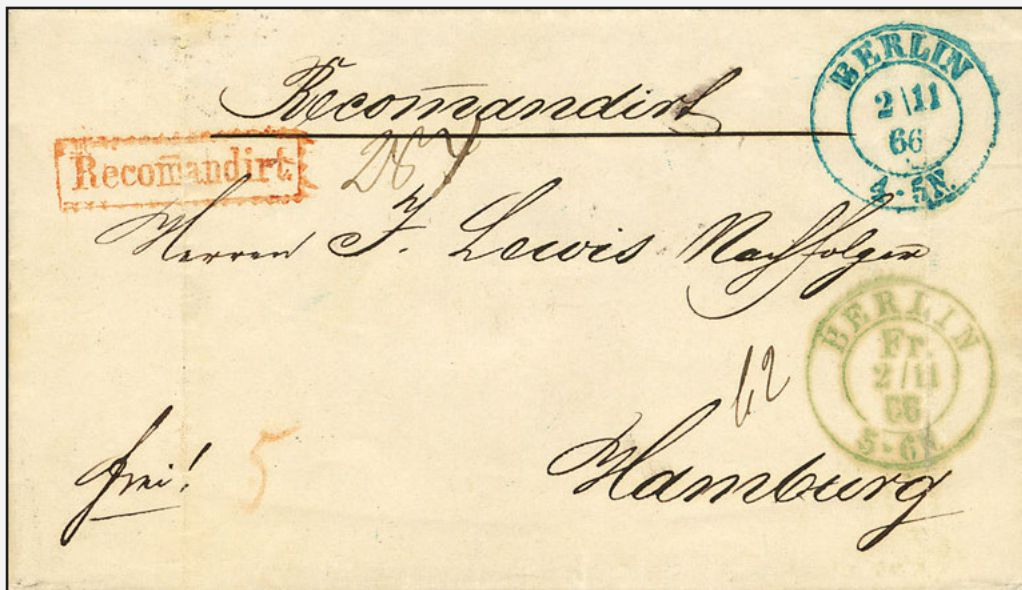 Recom̄andirt
BERLIN
2|11
66
4-5N.
Recom̄andirt
287
Herren J. Lewis Nachfolger
BERLIN
Fr.
2/11
66
5-6N.
62
frei!
5
Hamburg